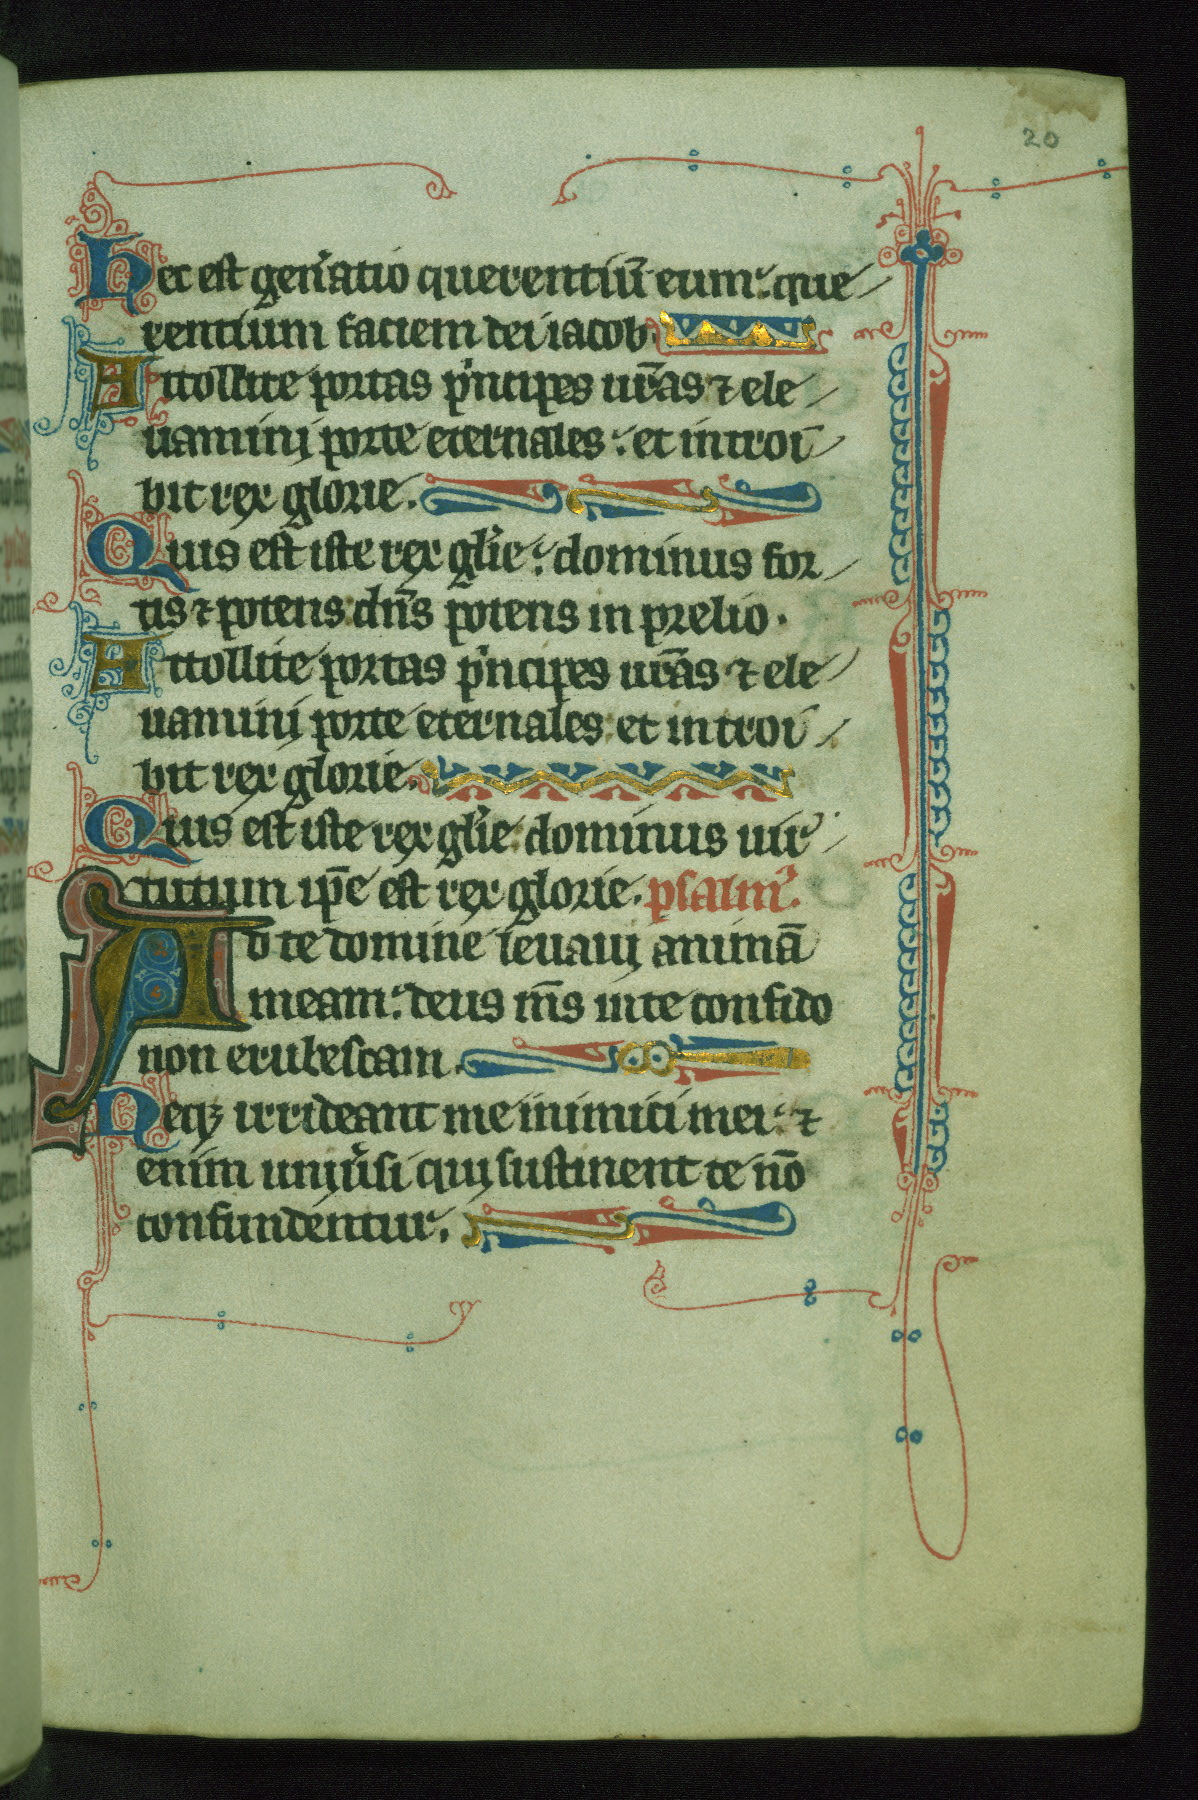 20
Hec est gen̾atio querentiū eum: que
rentium faciem dei iacob.
Attollite portas p̾ncipes ur̄as ⁊ ele
uamini porte eternales: et introi
bit rex glorie.
Quis est iste rex gl̾ie: dominus for
tis ⁊ potens dn̄s potens in prelio.
Attollite portas p̾ncipes ur̄as ⁊ ele
uamini porte eternales et introi
bit rex glorie.
Quis est iste rex gl̾ie: dominus uir
tutum ip̄e est rex glorie. psalm̾.
Ad te domine leuaui animā
meam: deus m̄s in te confido
non erubescam.
Neqꝫ irrideant me inimici mei: ⁊
enim uniu̾si qui sustinent te nō
confundentur.